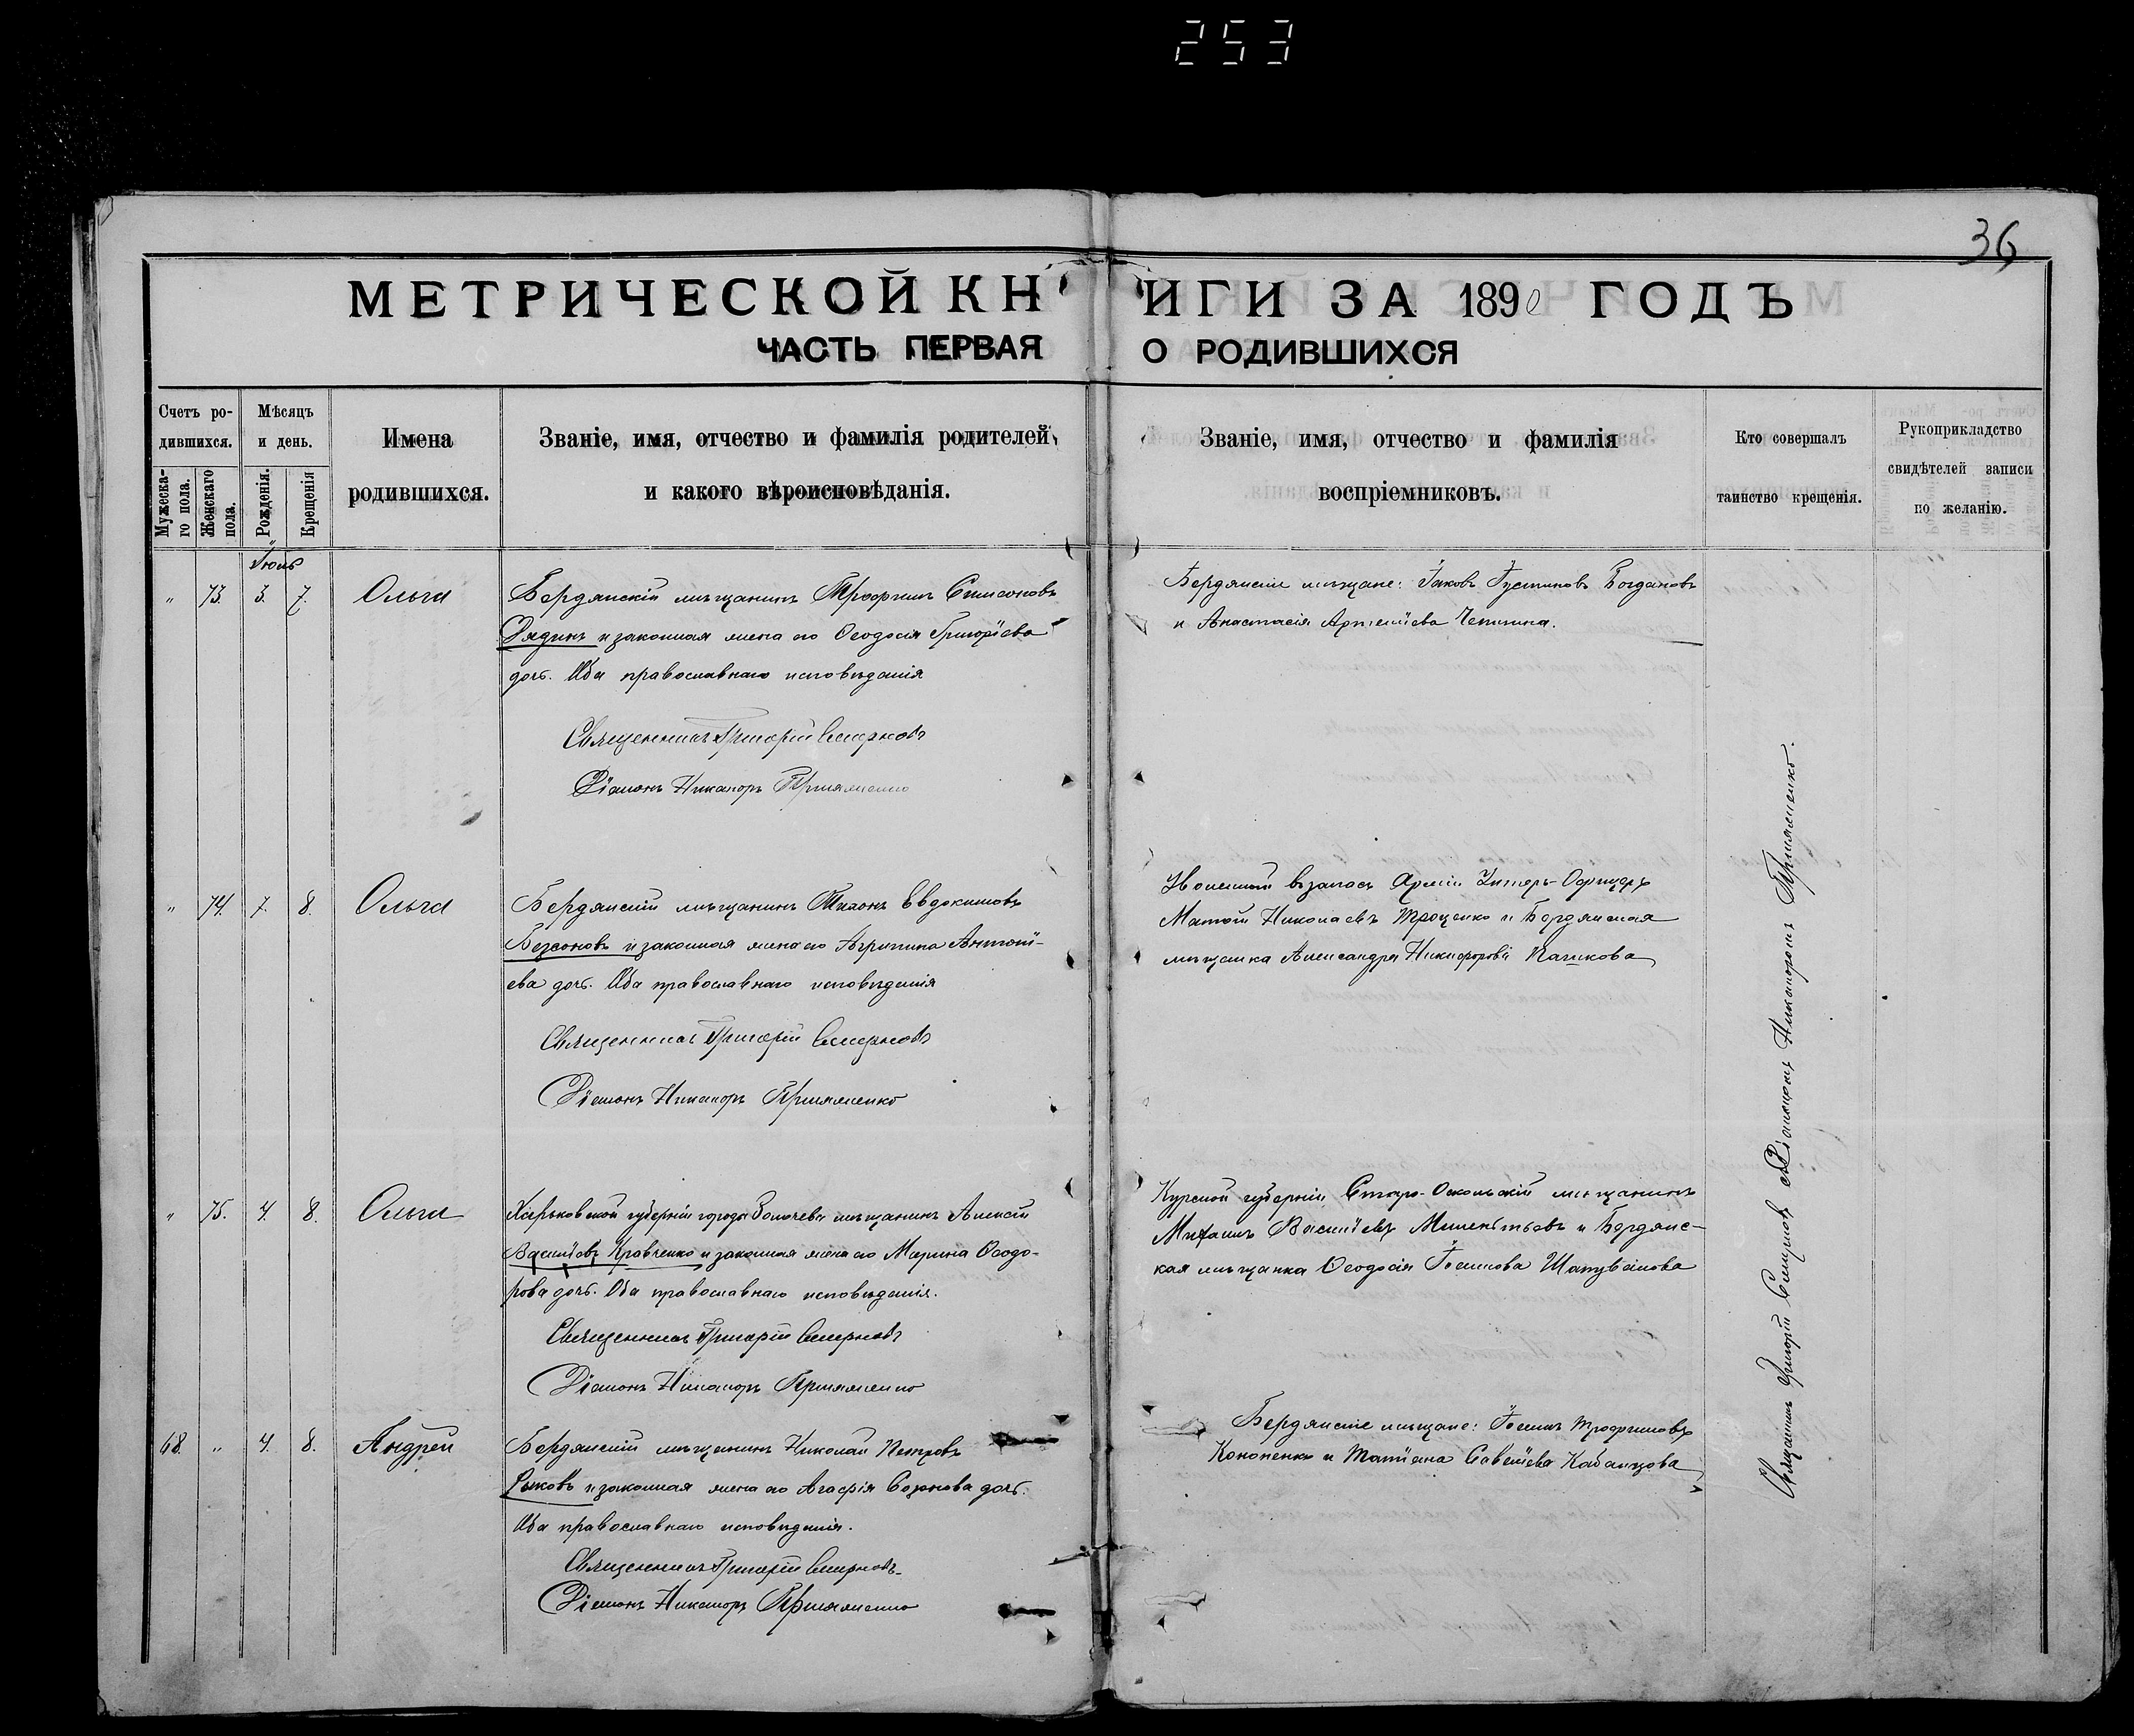 253
36
МЕТРИЧЕСКОЙ КНИГИ ЗА 1890 ГОДЪ
ЧАСТЬ ПЕРВАЯ О РОДИВШИХСЯ
Счетъ ро-
дившихся.
Мужеска-
го пола.
Женскаго
пола.
Мѣсяцъ
и день.
Рожденія.
Крещенія
Имена
родившихся.
Званіе, имя, отчество и фамилія родителей
и какого вѣроисповѣданія.
Званіе, имя, отчество и фамилія
воспріемниковъ.
Кто совершалъ
таинство крещенія.
Рукоприкладство
свидѣтелей записи
по желанію.
Іюль
" 73. 3. 7. Ольга
Бердянскій мѣщанинъ Трофимъ Симеоновъ
Дядинъ и законная жена его Ѳеодосія Григоріева
дочь. Оба православнаго исповѣданія
Священникъ Григорій Смирновъ
Діаконъ Никаноръ Прияженко
Бердянскіе мѣщане: Іаковъ Іустиновъ Богдановъ
и Анастасія Артеміева
" 74. 7. 8. Ольга
Бердянскій мѣщанинъ Тихонъ Евдокимовъ
Безсоновъ и законная жена его Агрипина Антоні-
ева дочь. Оба православнаго исповѣданія
Священникъ Григорій Смирновъ
Діаконъ Никаноръ Прияженко
Уволенный въ запасъ Арміи Унтеръ-Офицеръ
Матѳій Николаевъ Троценко и Бердянская
мѣщанка Александра Никифорова Пашкова
" 75. 4. 8. Ольга
Харьковской губерніи города Золочева мѣщанинъ Алексій
Василіевъ Кравченко и законная жена его Марина Ѳеодо-
рова дочь. Оба православнаго исповѣданія.
Священникъ Григорій Смирновъ
Діаконъ Никаноръ Прияженко
Курской губерніи Старо-Оскольскій мѣщанинъ
Михаилъ Василіевъ и Бердянс-
кая мѣщанка Ѳеодосія Шаповалова
68. " 4. 8. Андрей
Бердянскій мѣщанинъ Николай Петровъ
Рыковъ и законная жена его Агафія дочь.
Оба православнаго исповѣданія.
Священникъ Григорій Смирновъ
Діаконъ Никаноръ Прияженко
Бердянскіе мѣщане: Трофимовъ
Кононенко и Татіана Савеліева Кабанцова
Священникъ Григорій Смирновъ съ Діакономъ Никаноромъ Прияженко.